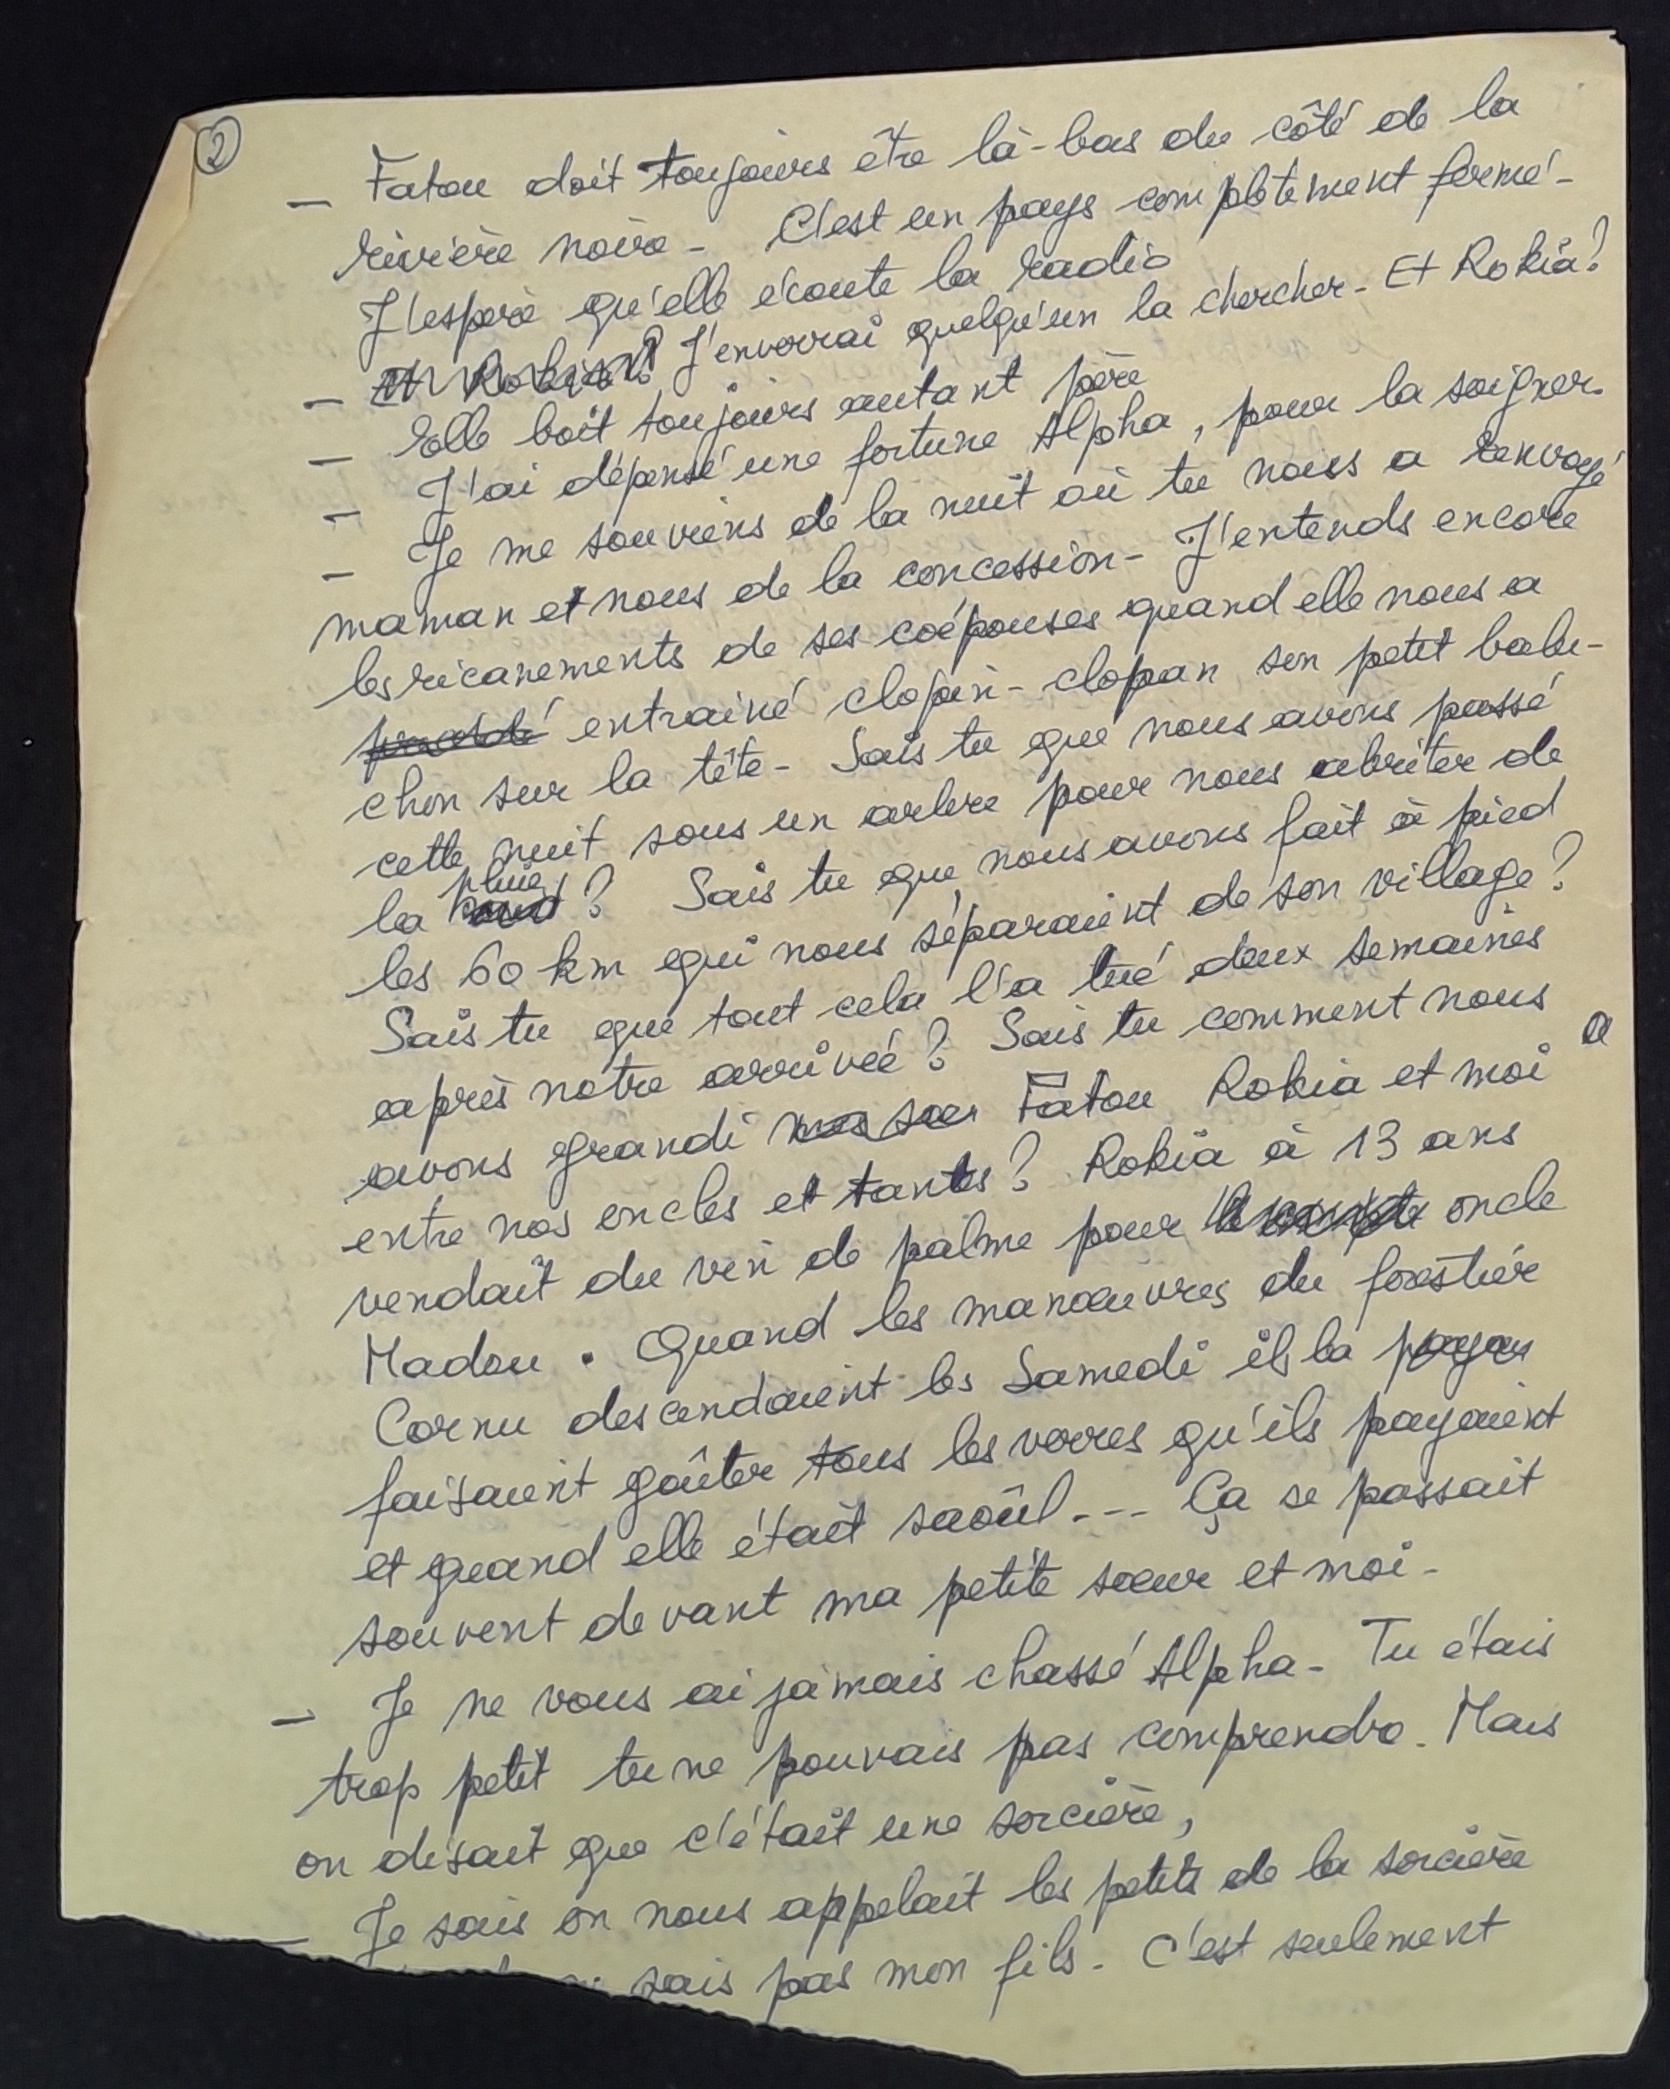 ②
— Fatou doit toujours être là-bas du côté de la
rivière noire - C'est un pays complètement fermé -
J'espère qu'elle écoute la radio
— Et Rokia? J'enverrai quelqu'un la chercher - Et Rokia?
— Elle boit toujours autant père
— J'ai dépensé une fortune Alpha, pour la soigner.
— Je me souviens de la nuit où tu nous a renvoyé
maman et nous de la concession - J'entends encore
les ricanements de ses coépouses quand elle nous a
entrainé clopin-clopan son petit balu-
chon sur la tête - Sais tu que nous avons passé
cette nuit sous un arbre pour nous abriter de
la pluie? Sais tu que nous avons fait à pied
les 60 km qui nous séparaient de son village?
Sais tu que tout cela l'a tué deux semaines
après notre arrivée? Sais tu comment nous
avons grandi Fatou Rokia et moi
entre nos oncles et tantes? Rokia à 13 ans
vendait du vin de palme pour oncle
Madou. Quand les manœuvres du forestier
Cornu descendaient les Samedi ils la
faisaient goûter tous les verres qu'ils payaient
et quand elle était saoûl --- Ça se passait
souvent devant ma petite sœur et moi -
— Je ne vous ai jamais chassé Alpha - Tu étais
trop petit tu ne pouvais pas comprendre. Mais
on disait que c'était une sorcière,
— Je sais on nous appelait les petits de la sorcière
sais pas mon fils - C'est seulement